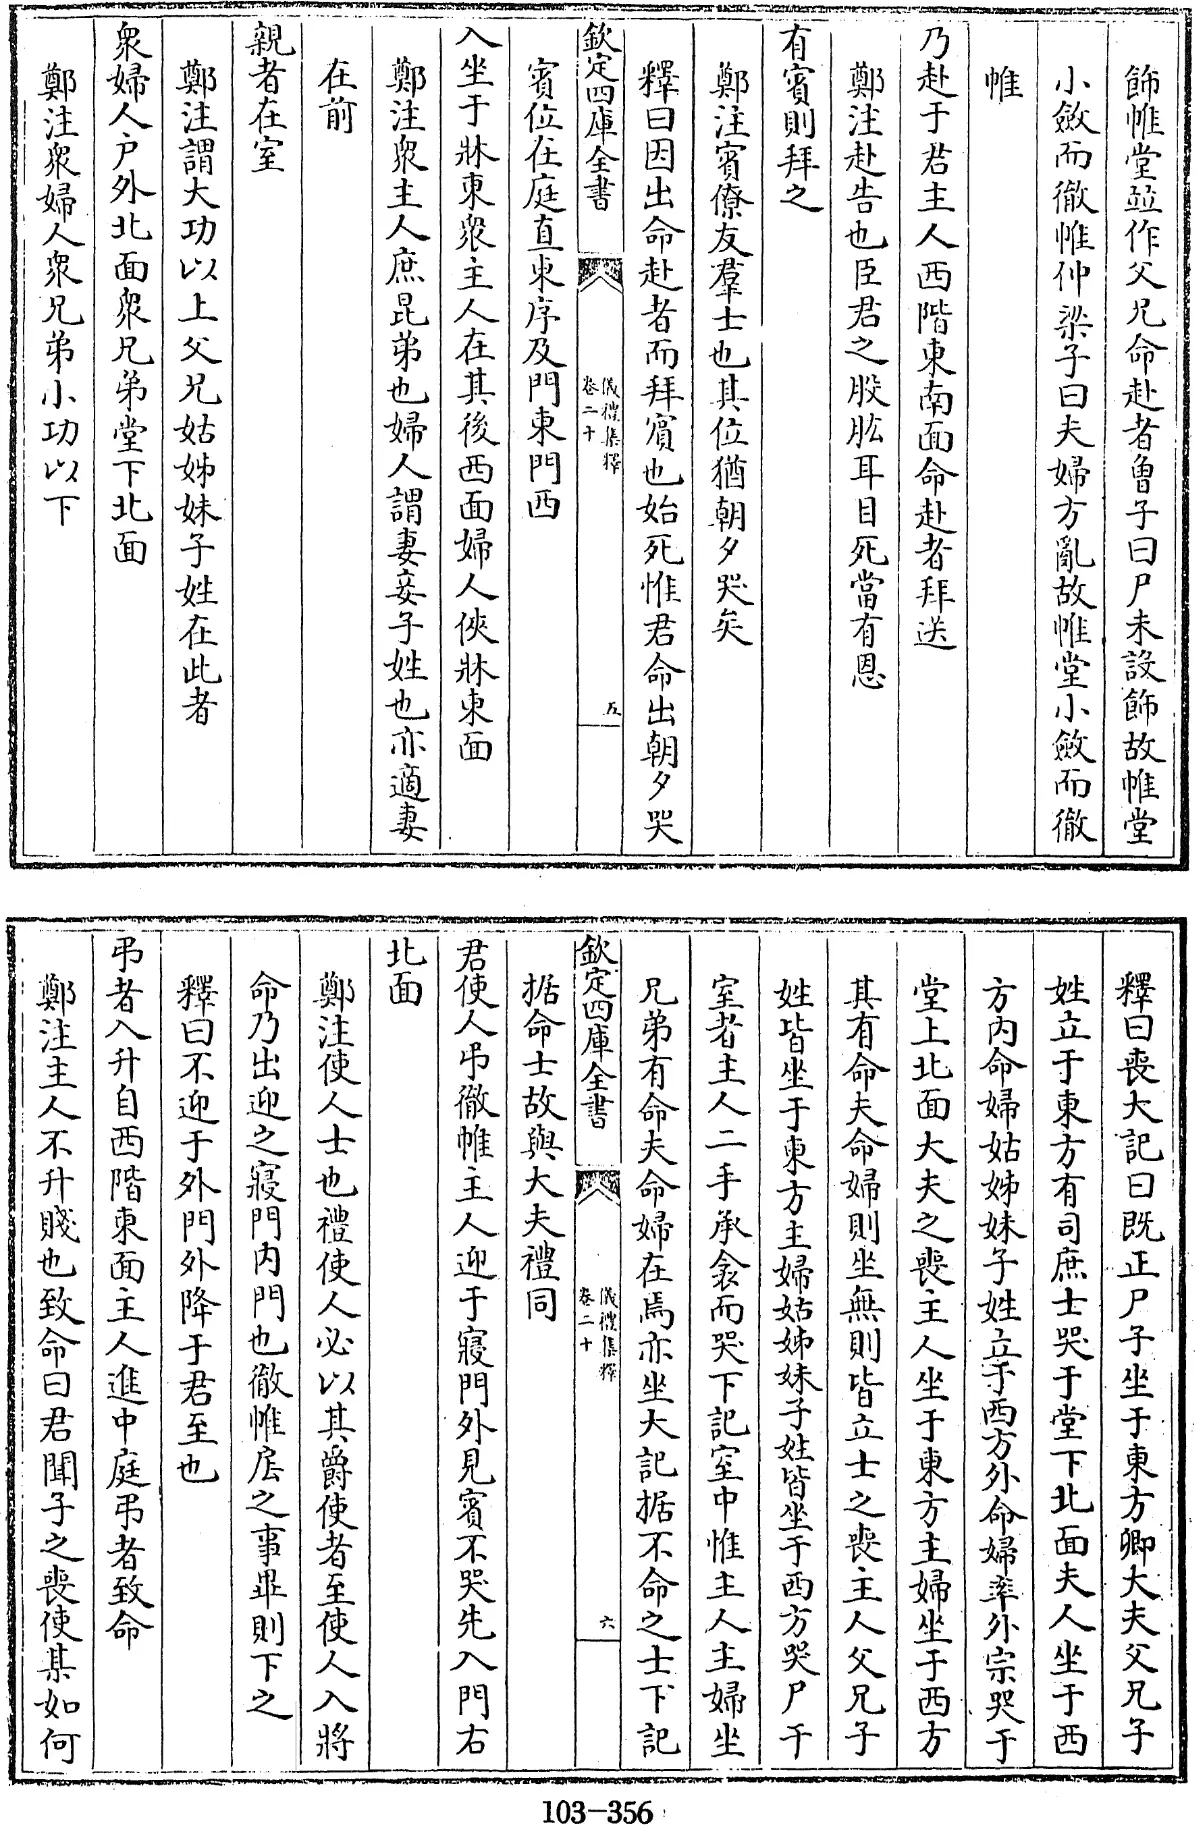 飾帷堂並作父兄命赴者魯子曰尸未設飾故帷堂
小斂而徹帷仲梁子曰夫婦方亂故帷堂小斂而徹
帷
乃赴于君主人西階東南面命赴者拜送
鄭注赴告也臣君之股肱耳目死當有恩
有賓則拜之
鄭注賓僚友羣士也其位猶朝夕哭矣
釋曰因出命赴者而拜賓也始死惟君命出朝夕哭
欽定四庫全書
儀禮集釋
卷二十
五
賓位在庭直東序及門東門西
入坐于牀東衆主人在其後西面婦人俠牀東面
鄭注衆主人庶昆弟也婦人謂妻妾子姓也亦適妻
在前
親者在室
鄭注謂大功以上父兄姑姊妹子姓在此者
衆婦人户外北面衆兄弟堂下北面
鄭注衆婦人衆兄弟小功以下
釋曰喪大記曰既正尸子坐于東方卿大夫父兄子
姓立于東方有司庶士哭于堂下北面夫人坐于西
方内命婦姑姊妹子姓立于西方外命婦率外宗哭于
堂上北面大夫之喪主人坐于東方主婦坐于西方
其有命夫命婦則坐無則皆立士之喪主人父兄子
姓皆坐于東方主婦姑姊妹子姓皆坐于西方哭尸于
室者主人二手承衾而哭下記室中惟主人主婦坐
兄弟有命夫命婦在焉亦坐大記据不命之士下記
欽定四庫全書
儀禮集釋
卷二十
六
据命士故與大夫禮同
君使人弔徹帷主人迎于寢門外見賓不哭先入門右
北面
鄭注使人士也禮使人必以其爵使者至使人入將
命乃出迎之寢門内門也徹帷㕎之事畢則下之
釋曰不迎于外門外降于君至也
弔者入升自西階東面主人進中庭弔者致命
鄭注主人不升賤也致命曰君聞子之喪使某如何
103-356